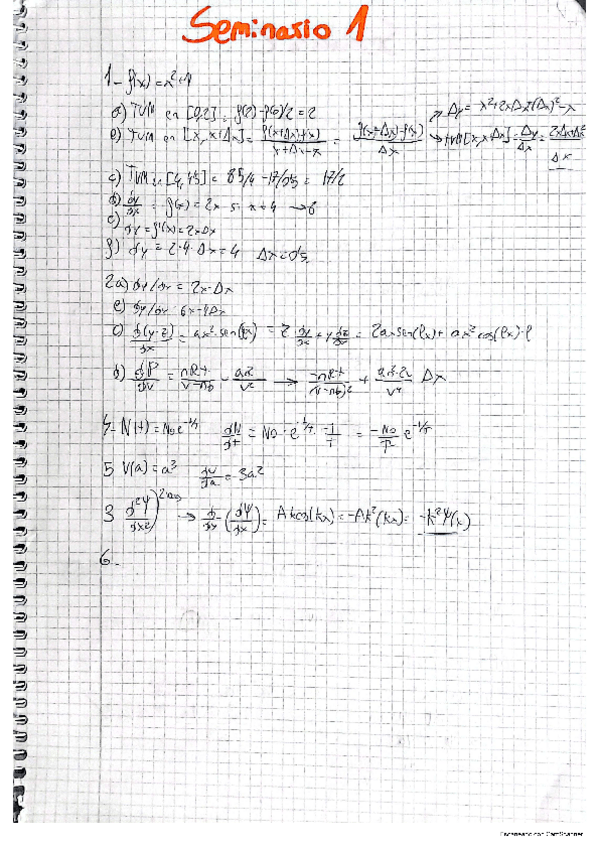 Seminario 1
1- f(x) = x²+1
a) TVM en [0,2] = f(2)-f(0)/2 = 2
TVM en [x, x+Δx] = f(x+Δx)-f(x)/x+Δx-x = f(x+Δx)-f(x)/Δx
Δy = x²+2xΔx+(Δx)²-x
TVM[x, x+Δx] = Δy/Δx =
c) TVM en [4, 4'5] = 85/4 - 17/0'5 = 17/2
d) dy/dx = f(x) = 2x si x=4 → 8
e) dy = f'(x) = 2xΔx
f) dy = 2·4·Δx = 4 Δx = 0'5
2a) dy/dx = 2x·Δx
dy/dx = 6x-4Δx
c) d(y·z)/dx = ax² sen(bx) = z dy/dx + y dz/dx = 2ax sen(bx) + ax² cos(bx)·b
d) dP/dV = nRt/v-nb - an²/v² → -nRt/(v-nb)² + an²·2v/v⁴ Δx
4- N(t) = N₀e^-t/T dN/dt = N₀·e^-t/T · -1/T = -N₀/T e^-t/T
5 V(a) = a³ dv/da = 3a²
3 d²Ψ/dx² → d/dx (dΨ/dx) = Ak cos(kx) = -Ak²(kx) = -k²Ψ(x)
6-
Escaneado con CamScanner